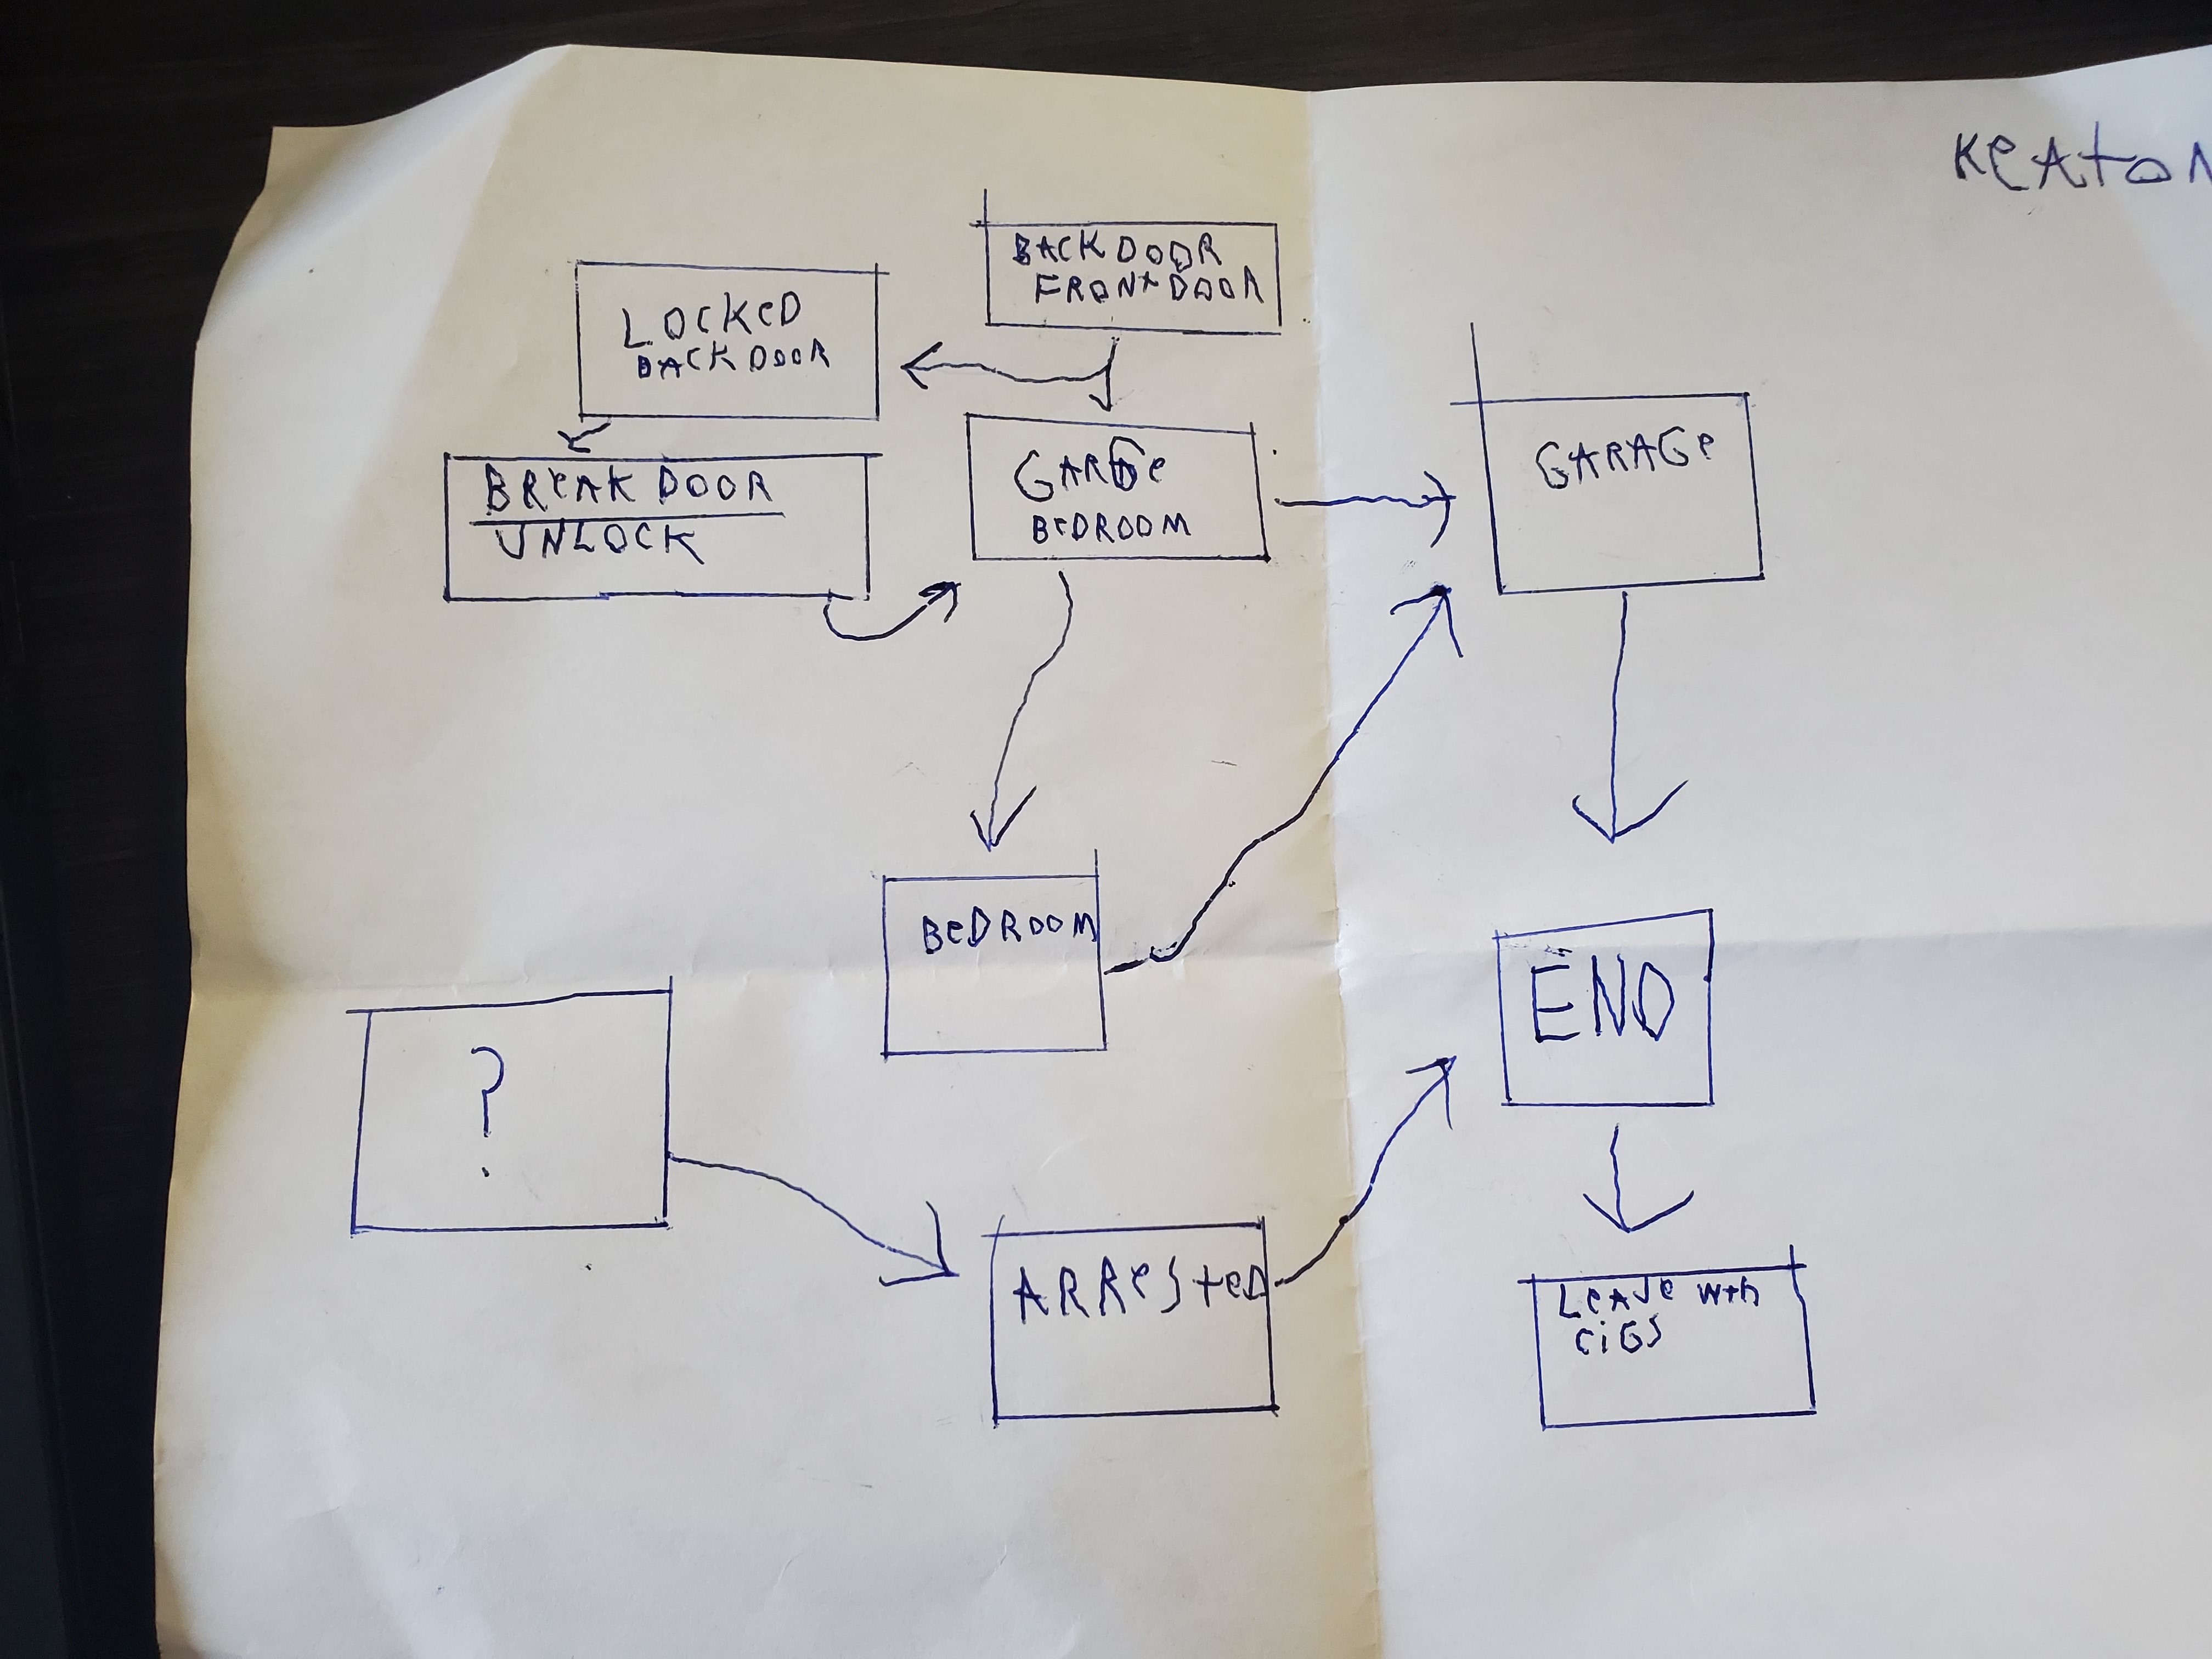 KeAtoN
BACK DOOR
FRONt DOOR
LOCKeD
BACK DOOR
BReAK DOOR
UNLOCK
BeDROOM
GARAGe
BeDROOM
?
END
ARResteD
LeAVe wth
CiGS